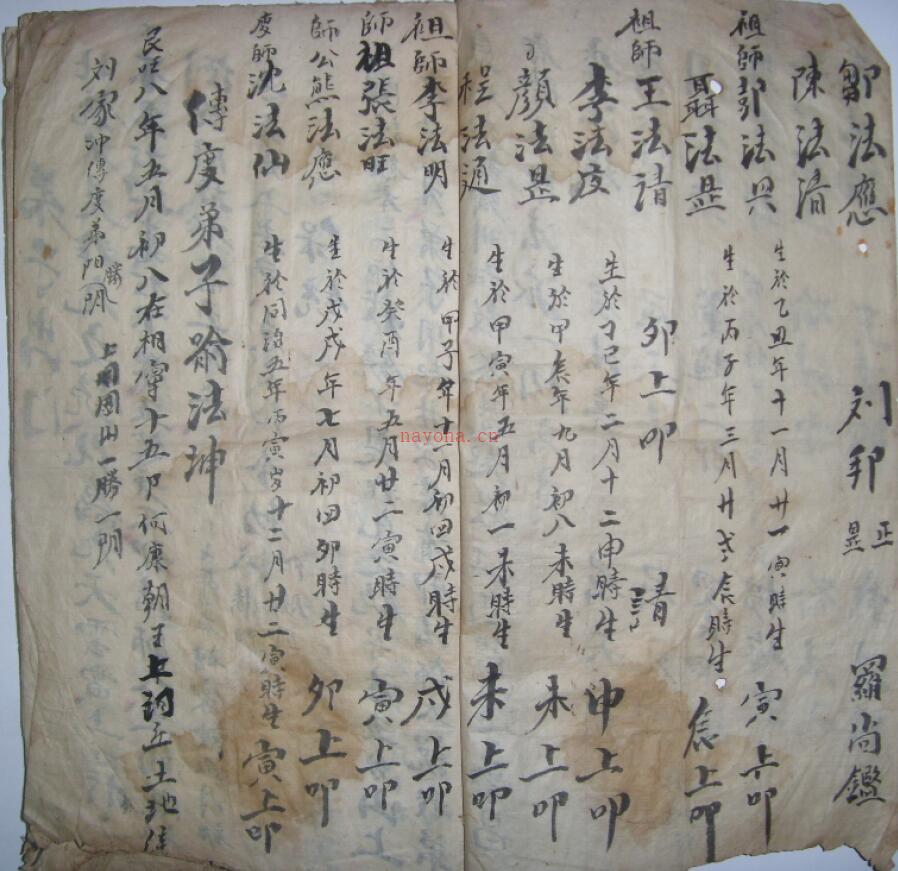 鄒法應 刘邦 正昰 羅尚鑑
陳法清
祖師郭法兴 生於乙丑年十一月廿一寅時生 寅上叩
聶法昰 生於丙子年三月廿弍辰時生 辰上叩
祖師王法請 卯上叩 請
李法度 生於丁巳年二月十二申時生 申上叩
顏法昰 生於甲辰年九月初八未時生 未上叩
程法通 生於甲寅年五月初一未時生 未上叩
祖師李法明 生於甲子年十二月初四戌時生 戌上叩
師祖張法旺 生於癸酉年五月廿二寅時生 寅上叩
師公熊法應 生於戊戌年七月初四卯時生 卯上叩
度師沈法仙 生於同治五年丙寅岁十二月廿二寅時生 寅上叩
傳度弟子喻法坤
民国八年五月初八在相寧十五卩何廉朝王上祠丘土地
刘家冲傳度弟 勝 一勝一陰
nayona.cn